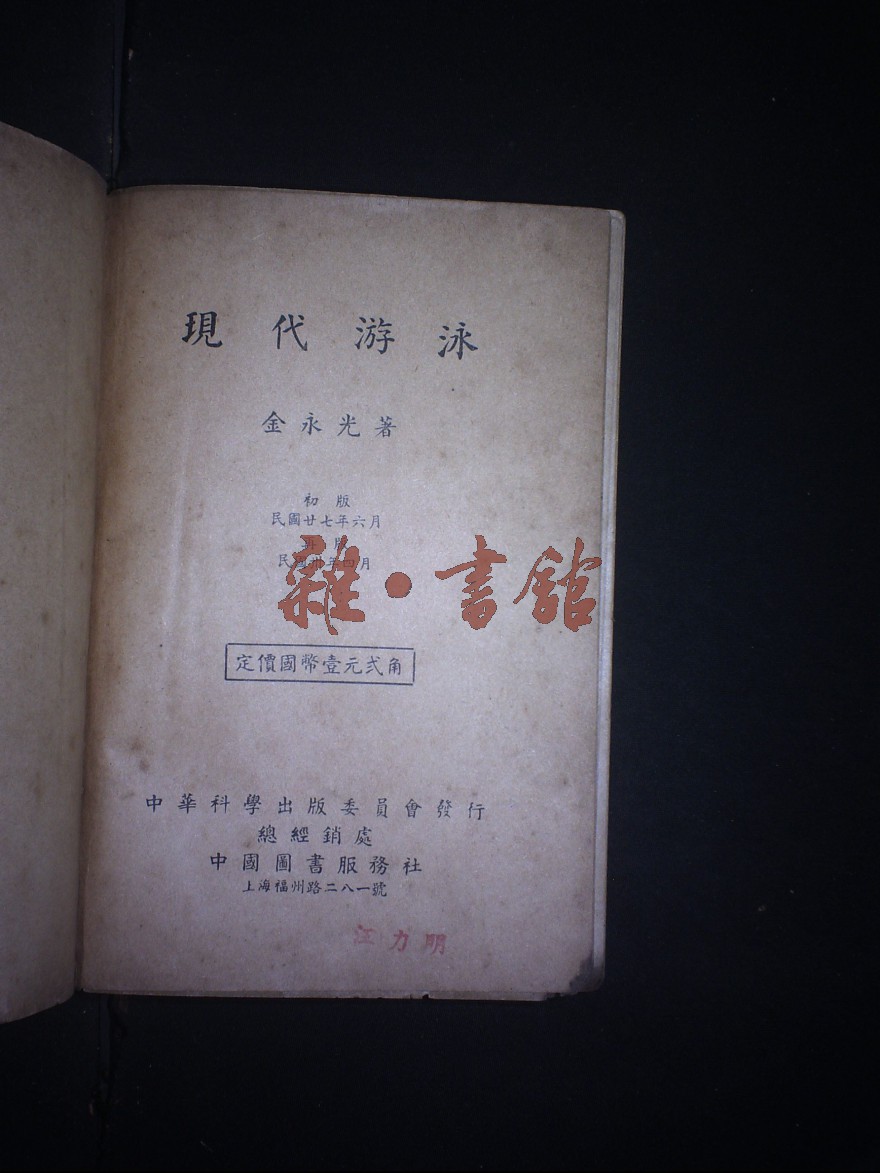 現代游泳
金永光著
初版
民國廿七年六月
再版
民國卅年四月
雜·書館
定價國幣壹元弍角
中華科學出版委員會發行
總經銷處
中國圖書服務社
上海福州路二八一號
江力明